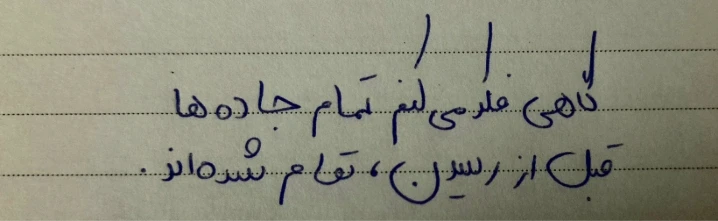 گاهی فکر می‌کنم تمام جاده ها
قبل از رسیدن، تمام شده‌اند.